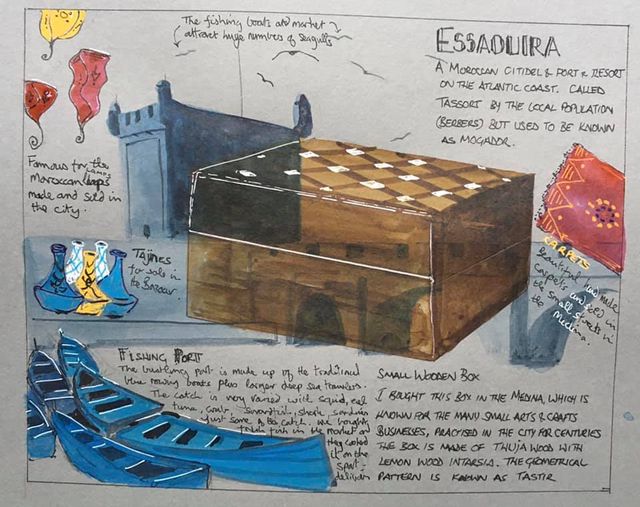 The fishing boats and market
attract huge numbers of seagulls
ESSAOUIRA
A MOROCCAN CITIDEL & PORT & RESORT
ON THE ATLANTIC COAST. CALLED
TASSORT BY THE LOCAL POPULATION
(BERBERS) BUT USED TO BE KNOWN
AS MOGADOR.
Famous for the
Moroccan Lamps
made and sold in
the city.
TAJINES
for sale in
the Bazaar.
CARPETS
Beautiful hand made
carpets are sold in
the small streets in
the Medina.
FISHING PORT
The bustling port is made up of the traditional
blue rowing boats plus larger deep sea trawlers.
The catch is very varied with squid, eel
tuna, crab, shark, sardines
just some of the catch. We bought
fish in the market and
they cooked
it on the
spot -
delicious
SMALL WOODEN BOX
I BOUGHT THIS BOX IN THE MEDINA, WHICH IS
KNOWN FOR THE MANY SMALL ARTS & CRAFTS
BUSINESSES, PRACTISED IN THE CITY FOR CENTURIES
THE BOX IS MADE OF THUJA WOOD WITH
LEMON WOOD INTARSIA. THE GEOMETRICAL
PATTERN IS KNOWN AS TASTIR